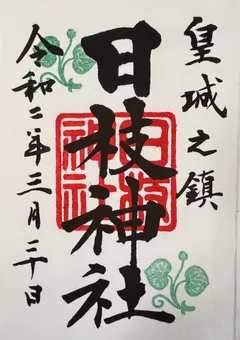 皇城之鎮
日枝神社
令和二年三月二十日
日枝神社